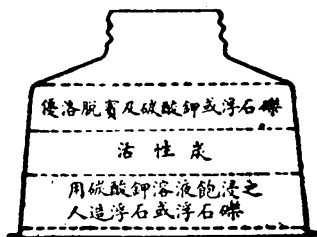 優洛脫賓及碳酸鉀或浮石礫
活性炭
用碳酸鉀溶液飽浸之
人造浮石或浮石礫